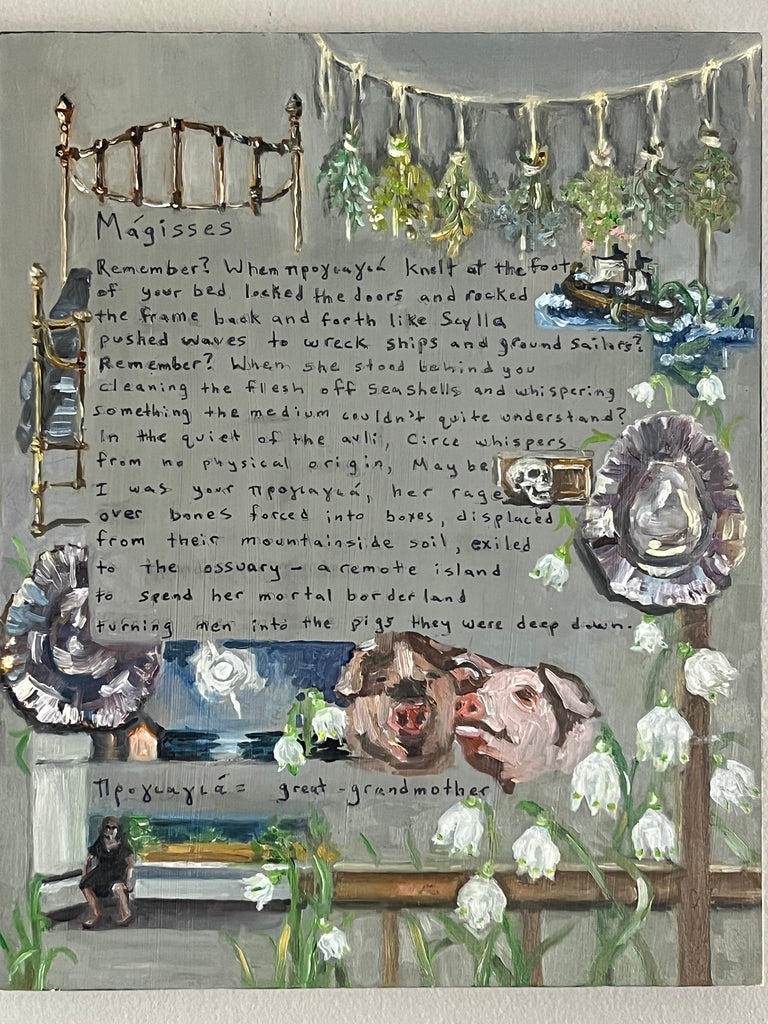 Mágisses
Remember? When προγιαγιά knelt at the foot
of your bed locked the doors and rocked
the frame back and forth like Scylla
pushed waves to wreck ships and ground sailors?
Remember? When she stood behind you
cleaning the flesh off seashells and whispering
something the medium couldn't quite understand?
In the quiet of the avli, Circe whispers
from no physical origin, Maybe
I was your προγιαγιά, her rage
over bones forced into boxes, displaced
from their mountainside soil, exiled
to the ossuary – a remote island
to spend her mortal borderland
turning men into the pigs they were deep down.
Προγιαγιά = great-grandmother